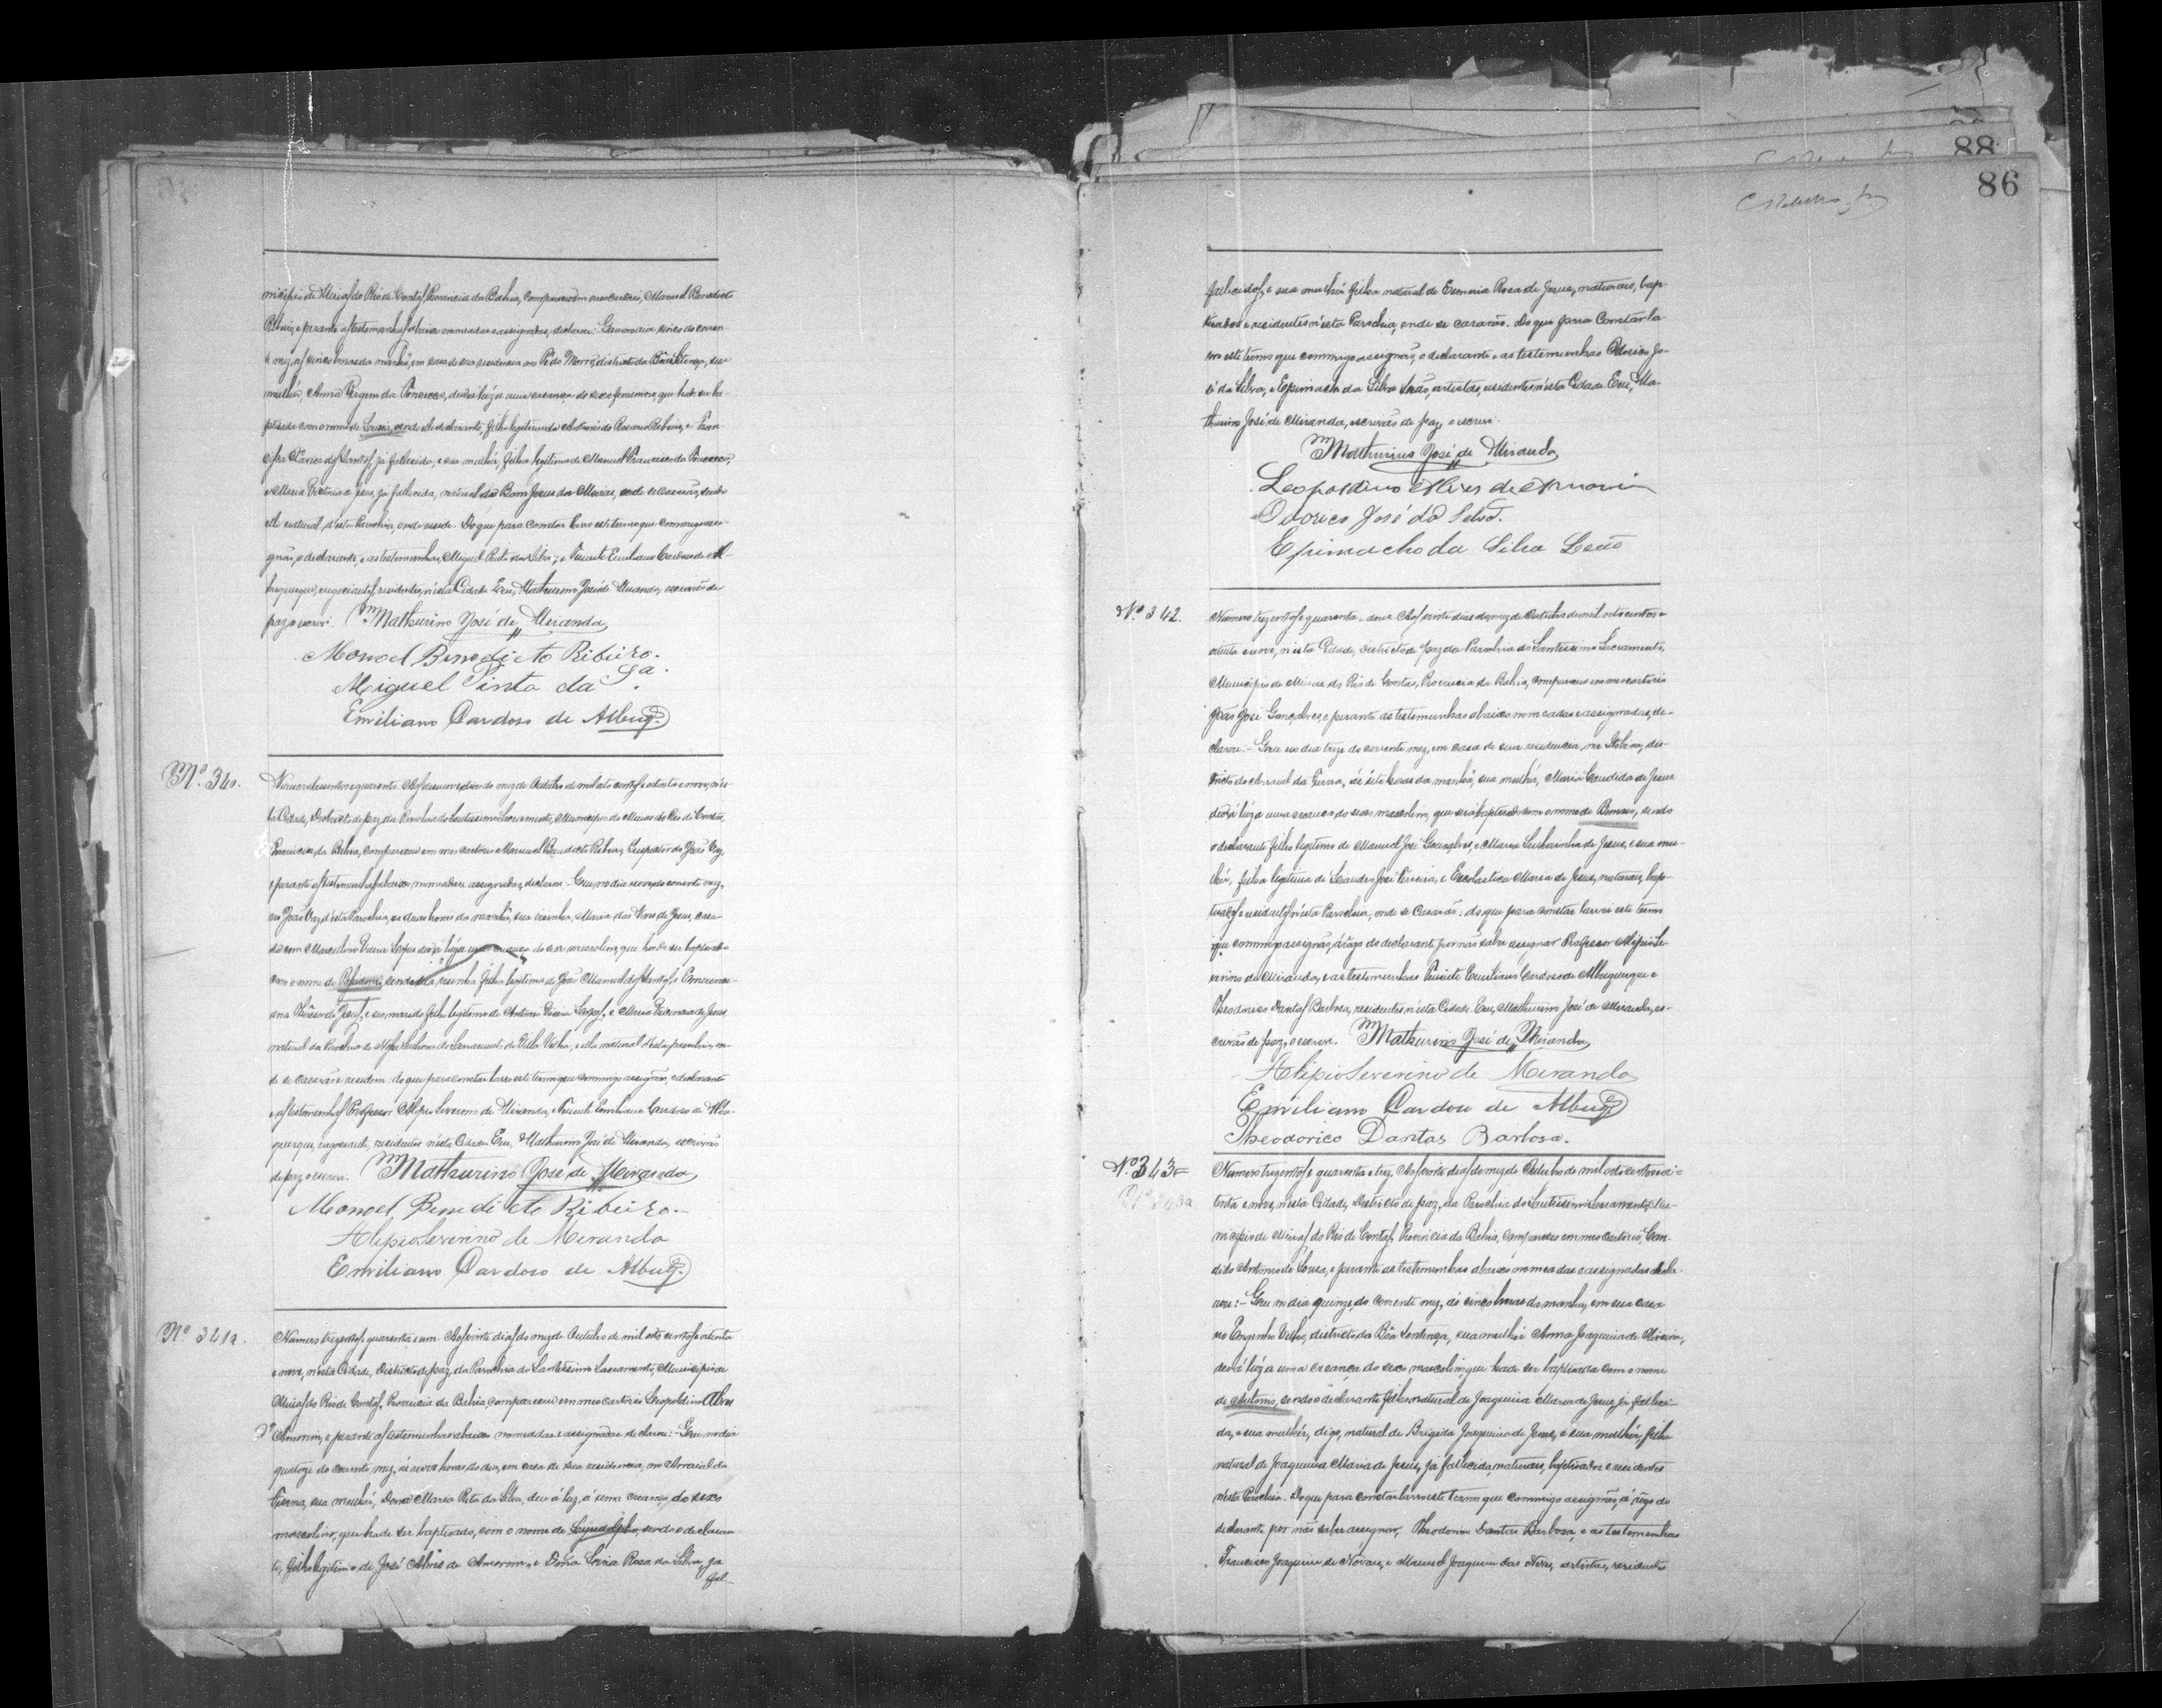 nicipio de Minas do Rio de Contas, Provincia da Bahia, compareceu em meu cartorio, Manoel Benedicto
Ribeiro, e perante as testemunhas abaixo nomeadas e assignadas, declarou: Que no dia cinco do corren-
te mez, as cinco horas da manhã, em casa de sua residencia no Pé do Morro, districto da Bôa Sentença, sua
mulher, Anna Virgem da Fonseca, deu á luz a uma creança do sexo femenino, que hade ser ba-
ptisada com o nome de Souza, sendo elle declarante, filho legitimo de Antonio do Rosario Ribeiro, e Fran-
cisca Xavier dos Santos, já fallecida, e sua mulher, filha legitima de Manoel Francisco da Fonseca,
e Maria Victoria de Jesus, já fallecida, natural do Bom Jesus dos Meiras, onde se casarão, sendo
elle natural d'esta Parochia, onde reside. Do que para constar lavro este termo que commigo assi-
gnão, o declarante, e as testemunhas, Miguel Pinto da Silva, e Tenente Emiliano Cardoso de Al-
buquerque, negociantes, residentes n'esta Cidade. Eu, Mathurino José de Miranda, escrivão de
paz, o escrevi. Mathurino José de Miranda
Manoel Benedicto Ribeiro.
Miguel Pinto da Sa.
Emiliano Cardoso de Albuqe.
Nº. 340.
Numero trezentos e quarenta. Aos desenove dias do mez de Outubro de mil oito centos e oitenta e nove, n'es-
ta Cidade, Districto de paz da Parochia do Santissimo Sacramento, Municipio de Minas do Rio de Contas,
Provincia da Bahia, compareceu em meu cartorio Manoel Benedicto Ribeiro, Inspector do João Vaz,
e perante as testemunhas abaixo nomeadas e assignadas, declarou: Que, no dia nove do corrente mez,
no João Vaz, d'esta Parochia, as duas horas da manhã, sua visinha, Maria das Neves de Jesus, casa-
da com Marcelino Vieira Lopes deu á luz a uma creança do sexo masculino, que hade ser baptisado
com o nome de sendo sua visinha filha legitima de João Manoel dos Santos, e
Thereza de Jesus, e seu marido filho legitimo de Antonio Vieira Lopes, e Maria de Jesus,
natural da Parochia de Nossa Senhora do Livramento de Villa Velha, e ella natural d'esta parochia, on-
de se casarão e residem: do que para constar lavro este termo que commigo assignão, o declarante
e as testemunhas Professor Alipio Severino de Miranda, e Tenente Emiliano Cardoso de Albu-
querque, negociante, residentes nesta Cidade. Eu, Mathurino José de Miranda, escrivão
de paz o escrevi. Mathurino José de Miranda
Manoel Benedicto Ribeiro.
Alipio Severino de Miranda
Emiliano Cardoso de Albuqe.
Nº 341
Numero trezentos, quarenta e um. Aos vinte dias do mez de Outubro de mil oito centos e oitenta
e nove, n'esta Cidade, Districto de paz, da Parochia do Santissimo Sacramento, Municipio de
Minas do Rio de Contas, Provincia da Bahia, compareceu em meu cartorio Leopoldino Alves
d' Amorim, e perante as testemunhas abaixo nomeadas e assignadas declarou: Que, no dia
quatorze do corrente mez, ás nove horas do dia, em casa de sua residencia, no Arraial da
Furna, sua mulher, Dona Maria Rita da Silva, deu á luz, á uma creança do sexo
masculino, que hade ser baptisado, com o nome de sendo o declaran-
te, filho legitimo de José Alves de Amorim, e Dona Rosa da Silva, ja
fal-
86
88
fallecidos, e sua mulher filha natural de Rosa de Jesus, naturaes, bap-
tisados e residentes n'esta Parochia, onde se casarão. Do que para Constar la-
vro este termo que commigo assignão, o declarante e as testemunhas Odorico Jo-
sé da Silva, e Epimacho da Silva Leão, artistas, residentes n'esta Cidade. Eu, Ma-
thurino José de Miranda, escrivão de paz, o escrevi.
Mathurino José de Miranda
Leopoldino Alves de Amorim
Odorico José da Silva.
Epimacho da Silva Leão
Nº. 342.
Numero trezentos e quarenta e dous. Aos vinte dias do mez de Outubro de mil oito centos e
oitenta e nove, n'esta Cidade, Districto de paz da Parochia do Santissimo Sacramento,
Municipio de Minas do Rio de Contas, Provincia da Bahia, compareceu em meu cartorio
João José Gonçalves, e perante as testemunhas abaixo nomeadas e assignadas, de-
clarou: - Que no dia treze do corrente mez, em casa de sua residencia, na dis-
tricto do Arraial da Furna, ás sete horas da manhã, sua mulher, Maria Candida de Jesus
deu á luz a uma creança do sexo masculino, que será baptisado com o nome de Romão, sendo
o declarante filho legitimo de Manoel José Gonçalves, e Maria de Jesus, e sua mu-
lher, filha legitima de Leandro José Pereira, e Escolastica Maria de Jesus, naturaes, bap-
tisados e residentes n'esta Parochia, onde se Casarão: do que para constar lavrei este termo
que commigo assignão, á rogo do declarante por não saber assignar Professor Alipio Se-
verino de Miranda, e as testemunhas Tenente Emiliano Cardoso de Albuquerque e
Theodorico Dantas Barbosa, residentes n'esta Cidade. Eu, Mathurino José de Miranda, es-
crivão de paz, o escrevi. Mathurino José de Miranda
Alipio Severino de Miranda
Emiliano Cardoso de Albuqe.
Theodorico Dantas Barbosa.
Nº 343
Numero trezentos e quarenta e trez. Aos vinte dias do mez de Outubro de mil oito centos e oi-
tenta e nove, n'esta Cidade, Districto de paz, da Parochia do Santissimo Sacramento, Mu-
nicipio de Minas do Rio de Contas, Provincia da Bahia, compareceu em meu Cartorio, Can-
dido Antonio de Souza, e perante as testemunhas abaixo nomeadas e assignadas decla-
rou: - Que no dia quinze do corrente mez, ás cinco horas da manhã, em sua casa
no Engenho Velho, districto da Bôa Sentença, sua mulher Anna Joaquina de Oliveira,
deu á luz a uma creança do sexo masculino, que hade ser baptisada com o nome
de Antonio, sendo o declarante filho natural de Joaquina Maria de Jesus, ja falleci-
da, e sua mulher, digo, natural de Brigida Joaquina de Jesus, e sua mulher, filha
natural de Joaquina Maria de Jesus, já fallecida, naturaes, baptisados e residentes
n'esta Parochia. Do que para constar lavro este termo que commigo assignão, á rogo do
declarante por não saber assignar, Theodorico Dantas Barbosa, e as testemunhas
Francisco Joaquim de Novaes, e Manoel Joaquim das Neves, artistas, residentes